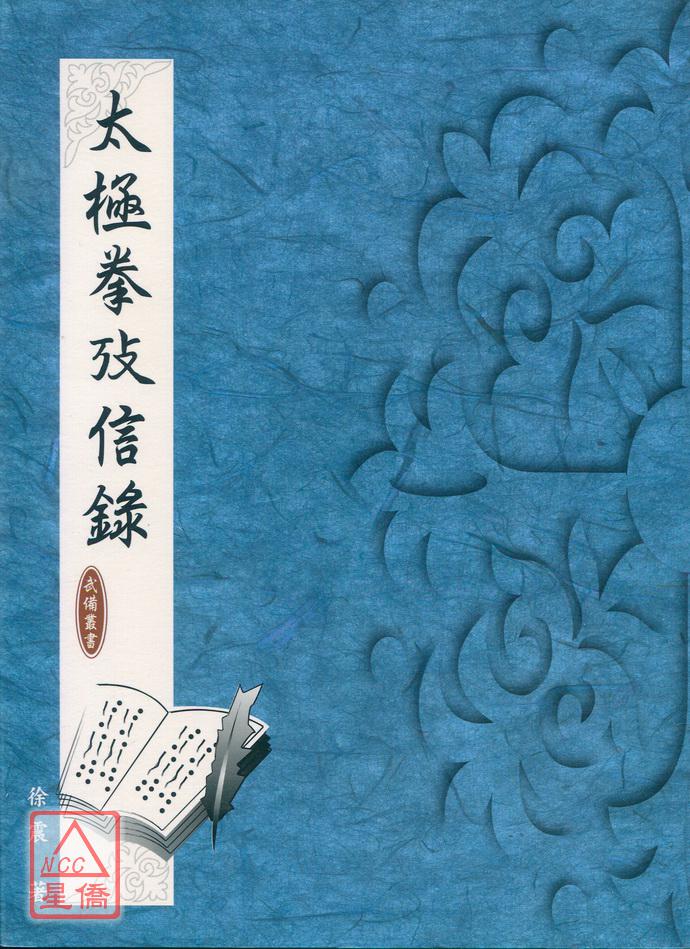 太極拳攷信錄
武備叢書
徐震 著
NCC
星僑